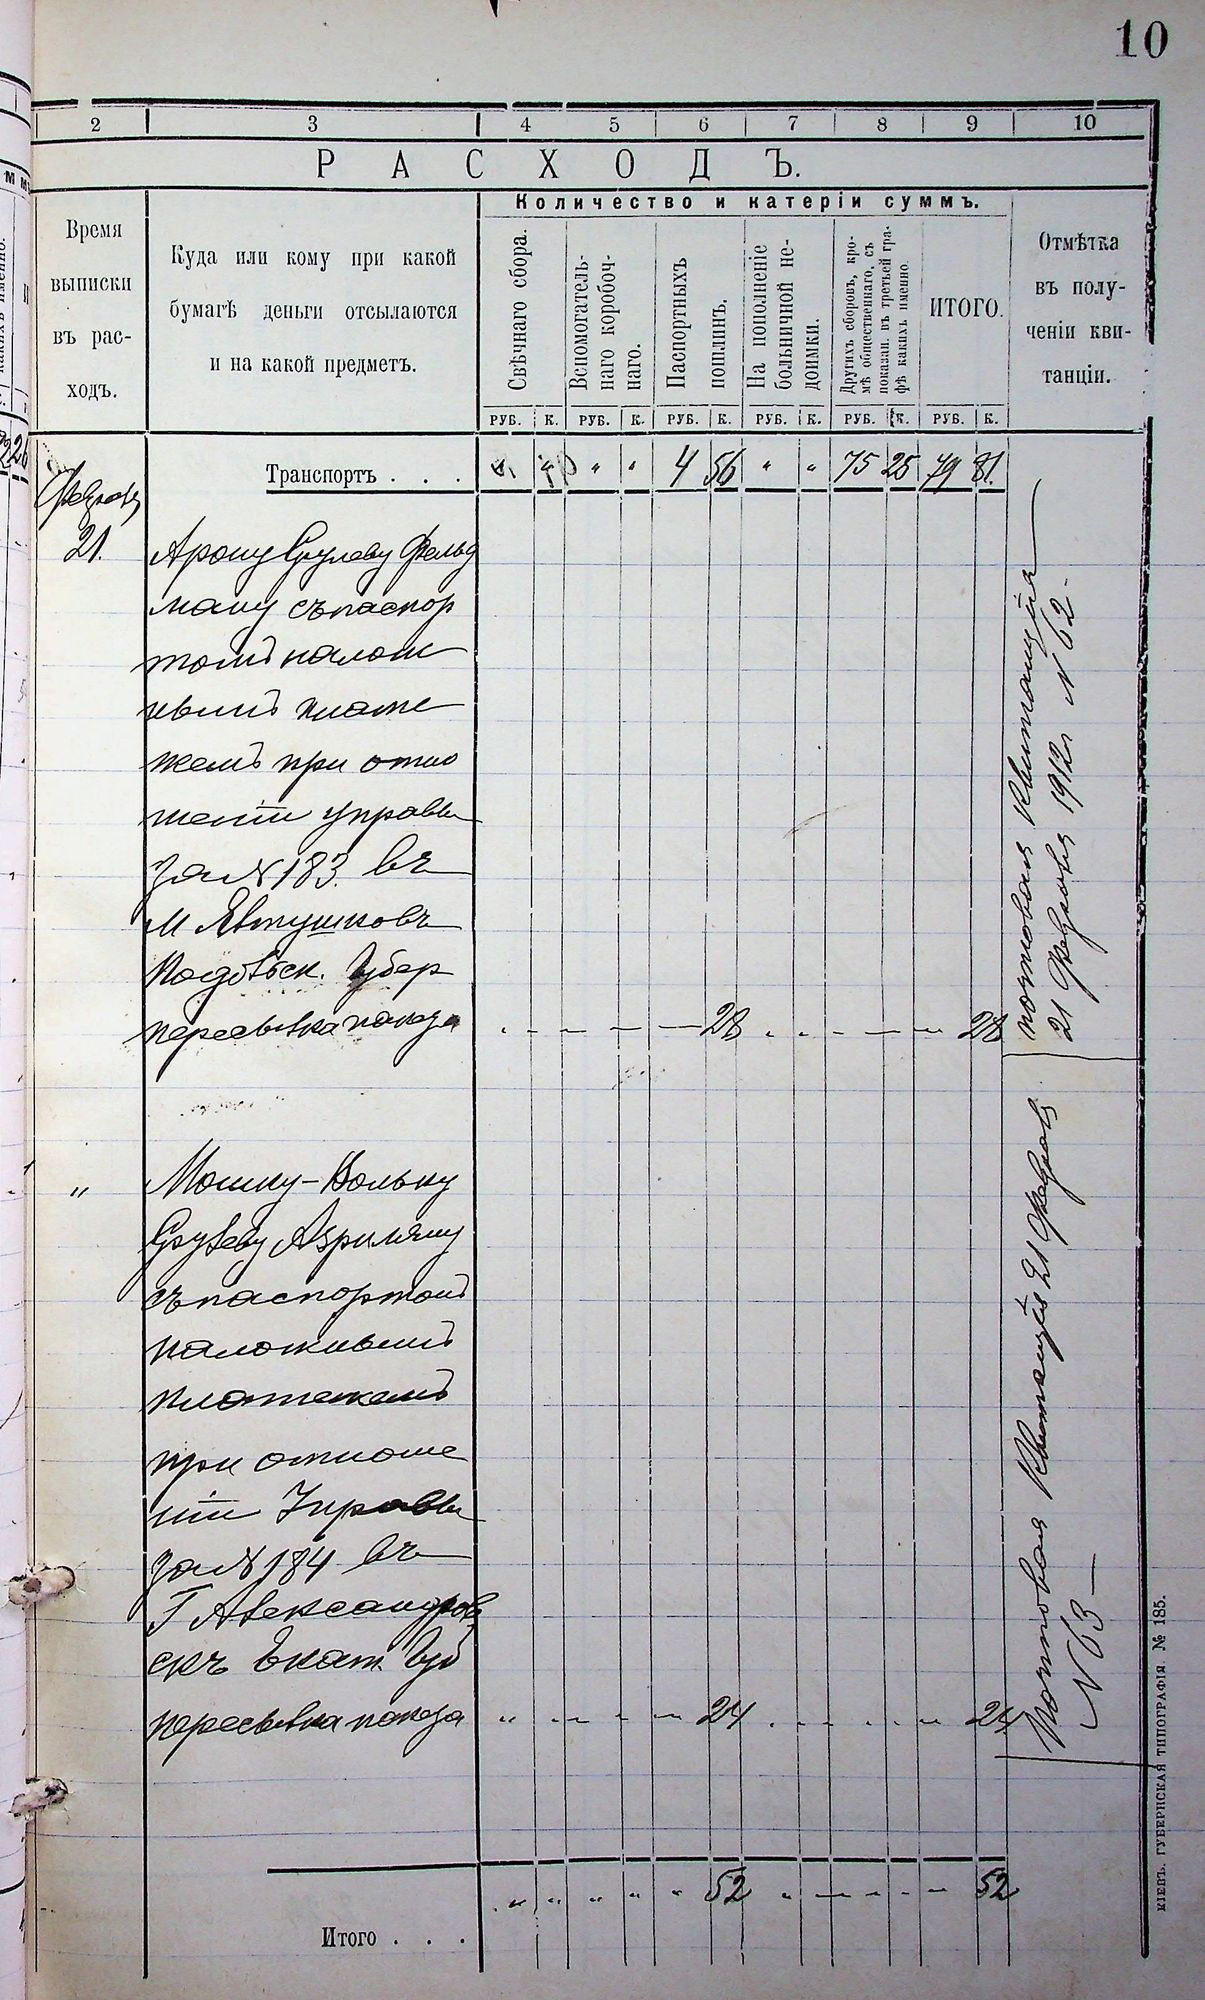 10
2 3 4 5 6 7 8 9 10
РАСХОДЪ.
Количество и катеріи суммъ.
Время
выписки
въ рас-
ходъ.
Куда или кому при какой
бумагѣ деньги отсылаются
и на какой предметъ.
Свѣчнаго сбора.
Вспомогатель-
наго коробоч-
наго.
Паспортныхъ
пошлинъ.
На пополненіе
больничной не-
доимки.
Другихъ сборовъ, кро-
мѣ общественнаго, съ
показан. въ третьей гра-
фѣ какихъ именно.
ИТОГО.
Отмѣтка
въ полу-
ченіи кви-
танціи.
РУБ. К. РУБ. К. РУБ. К. РУБ. К. РУБ. К. РУБ. К.
Транспортъ . . . " " 4 56 " " 75 25 79 81.
21.
Арону Срулеву Фельд
ману съ паспор
томъ налож
нымъ плате
жемъ при отно
шеніи управы
за № 183. въ
м Явтушковъ
Подольск. Губер
пересылка пакета 28 28
почтовая Квитанція
21 Февраля 1912 г № 62
" Мошку-Вольку
Срулеву
съ паспортомъ
наложнымъ
платежемъ
при отноше
ніи Управы
за № 184 въ
Г Александров
скъ Екат. Губ
пересылка пакета " 24 24
Почтовая Квитанція 21 Февраля
№ 63
52 52
Итого . . .
КІЕВЪ. ГУБЕРНСКАЯ ТИПОГРАФІЯ. № 185.